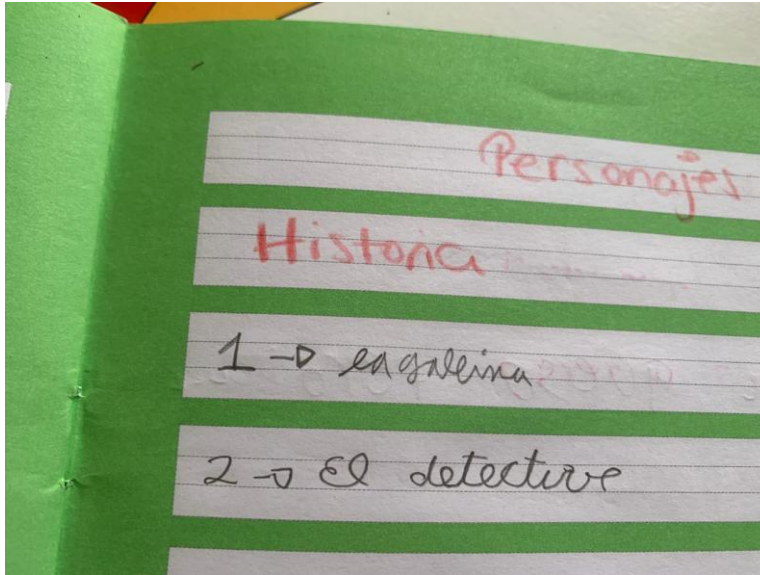 Personajes
Historia
1 → la gallina
2 → El detective